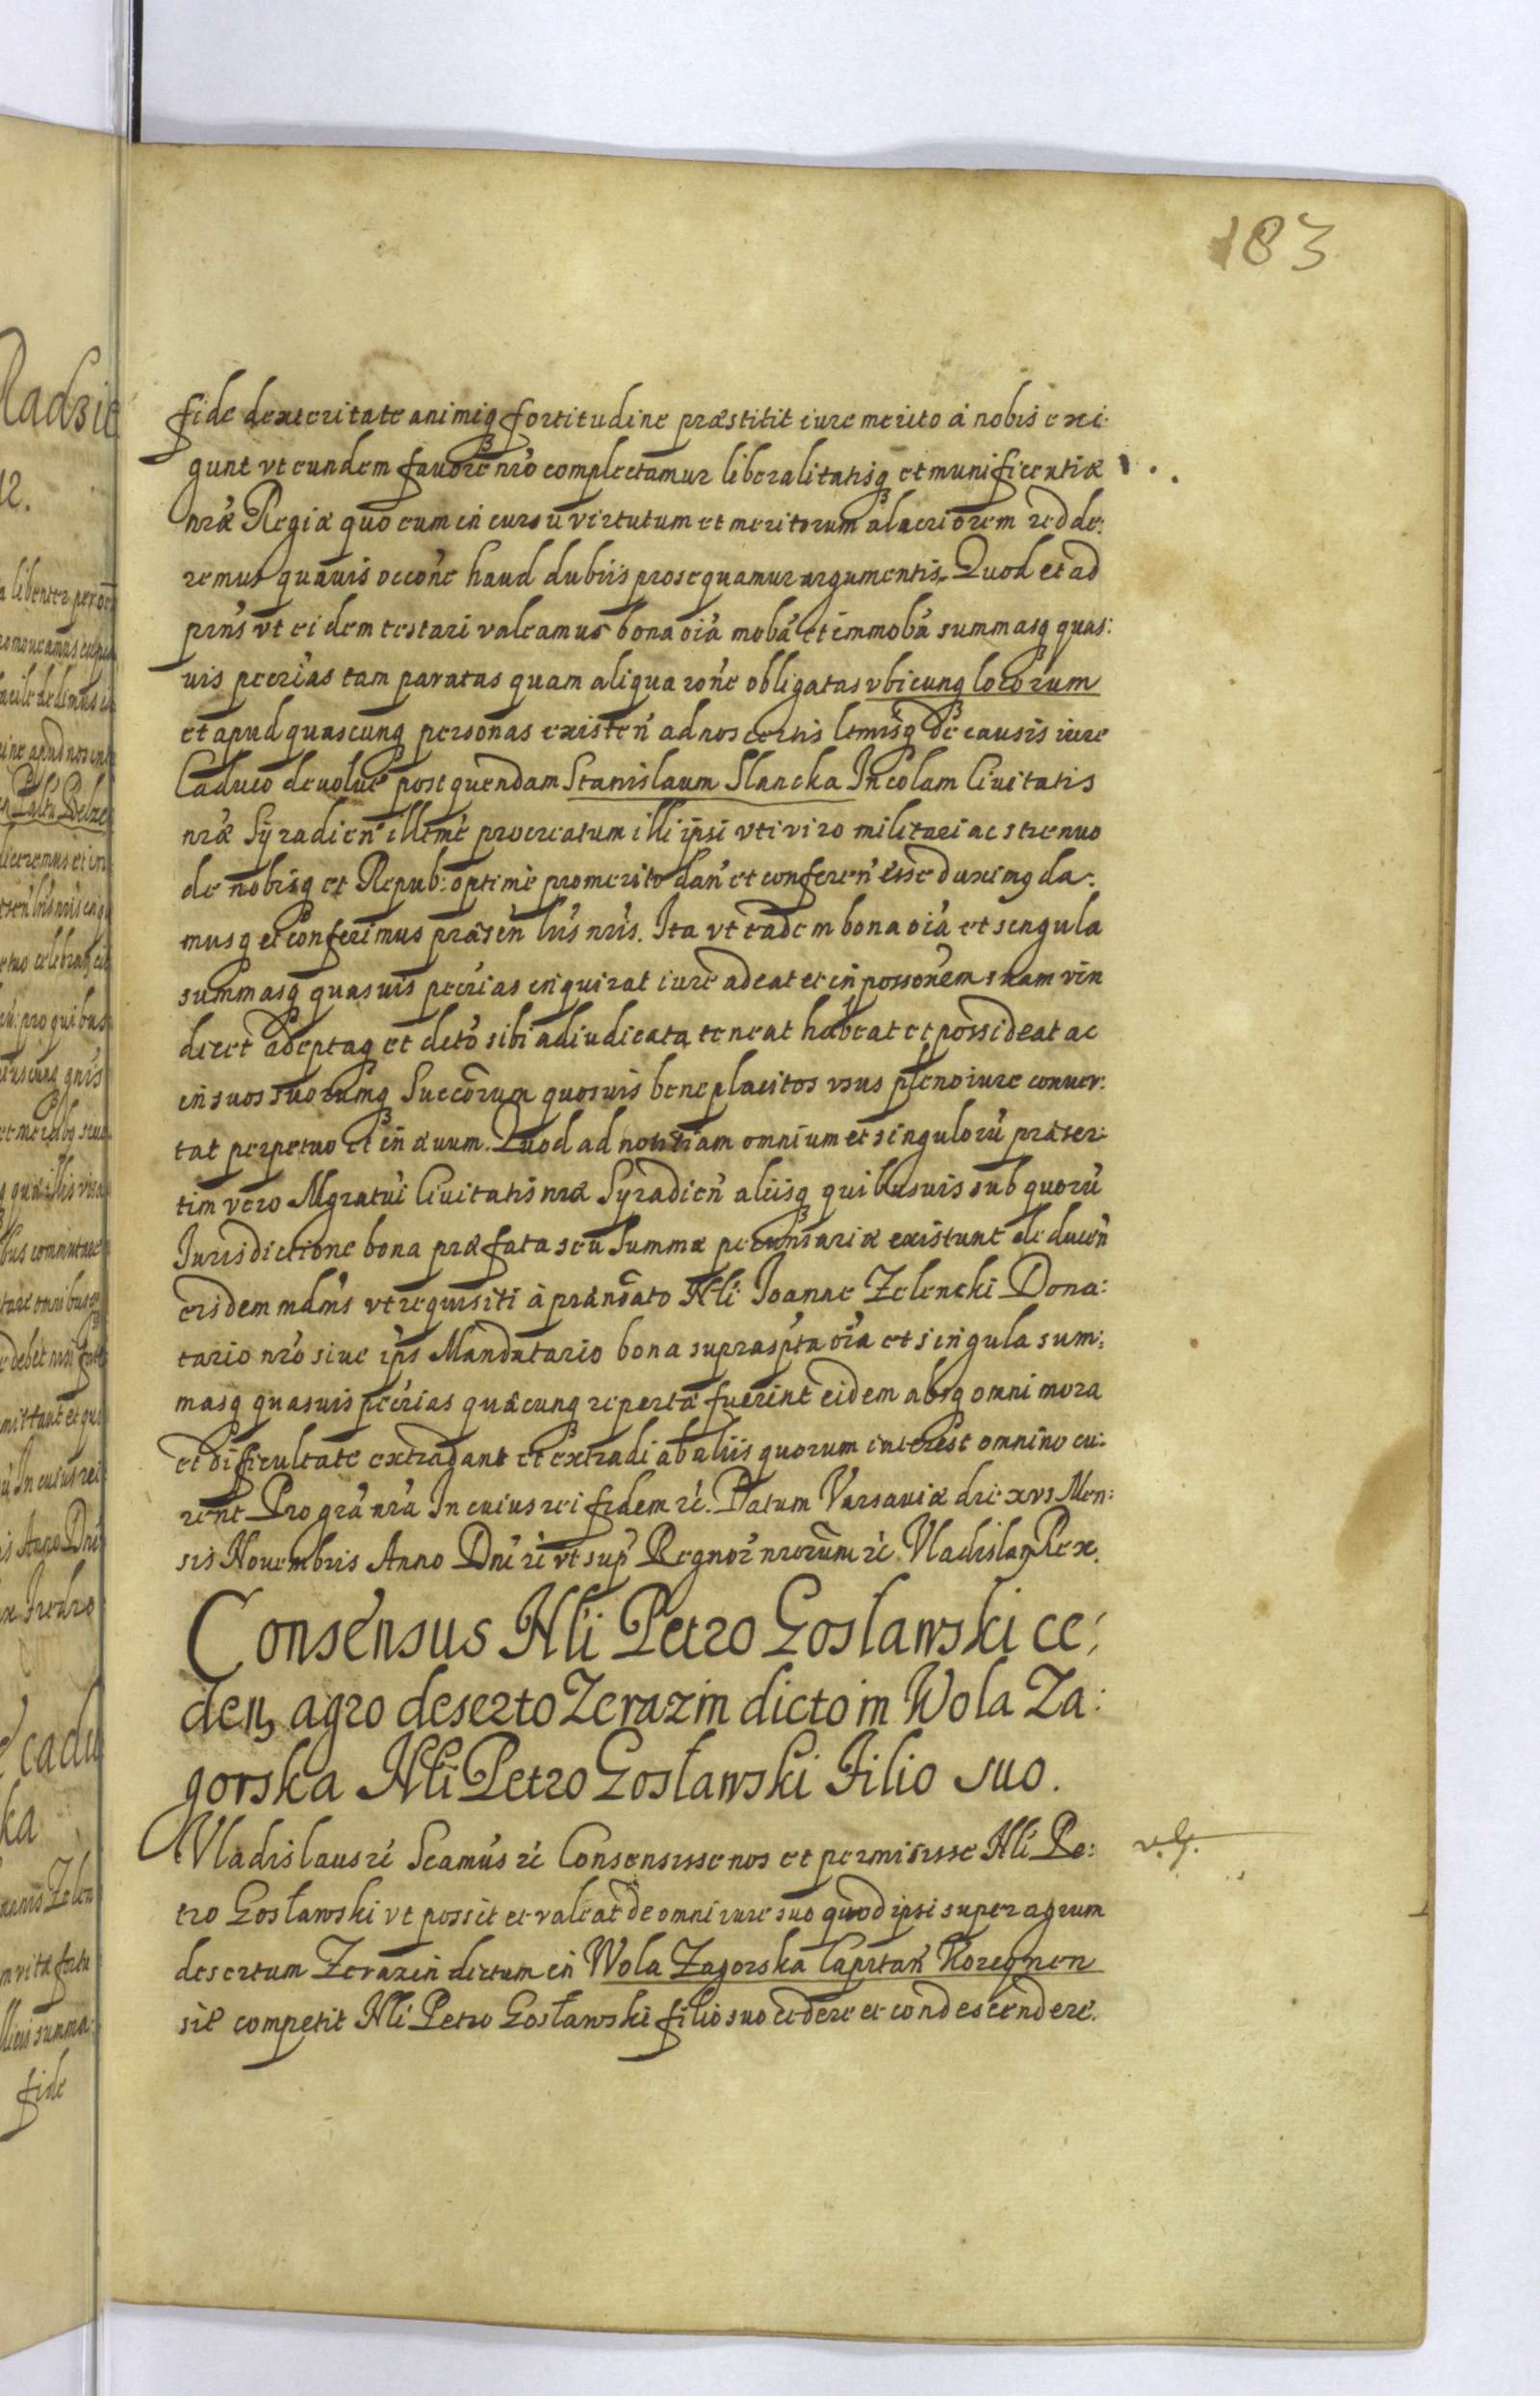 183
fide dexteritate animiq₃ fortitudine præstitit iure merito à nobis exi:
gunt vt eundem fauore nr̃o complectamur liberalitatisq₃ et munificentiæ
nr̃æ Regiæ quo eum in cursu virtutum et meritorum alacriorem redde:
remus quauis occõne haud dubiis prosequamur argumentis. Quod et ad
prñs vt eidem testari valeamus bona oĩa mobã et immobã summasq₃ quas:
uis pecrĩas tam paratas quam aliqua rõne obligatas vbicunq₃ locorum
et apud quascunq₃ personas existeñ ad nos certis ltmisq₃ de causis iure
Caduco deuolut̃ post quendam Stanislaum Slancka Incolam Ciuitatis
nr̃æ Syradieñ illtmè procreatum illi ipsi vti viro militari ac strenuo
de nobisq₃ et Repub: optimè promerito dañ et confereñ esse duximq₃ da:
musq₃ et conferimus præseñ lr̃is nr̃is. Ita vt eadem bona oĩa et singula
summasq₃ quasuis pecrĩas inquirat iure adeat et in possõnem suam vin
dicet adeptaq₃ et dctõ sibi adiudicata teneat habeat et possideat ac
in suos suorumq₃ Succõrum quosuis beneplacitos vsus pleno iure conuer:
tat perpetuo et in æuum. Quod ad notitiam omnium et singulorũ præser:
tim vero Mgratũi Ciuitatis nr̃æ Syradieñ aliisq₃ quibusuis sub quorũ
Jurisdictione bona præfata seu Summæ pecuniariæ existunt deduceñ
eisdem mdm̃s vt requisiti à prænoĩato Nlĩ Joanne Zelencki Dona:
tario nr̃o siue ip̃s Mandatario bona suprasp̃ta oĩa et singula sum:
masq₃ quasuis pecrĩas quæcunq₃ repertæ fuerint eidem absq₃ omni mora
et difficultate extradant et extradi ab aliis quorum interest omnino cu:
rent Pro grã nr̃a In cuius rei fidem ẽt. Datum Varsauiæ die xvi Men:
sis Nouembris Anno Dnĩ ẽt vt sup̃ Regnor̃ nrorum ẽt. Vladislaus Rex.
Consensus Nlĩ Petro Gosławski ce:
den, agro deserto Zerazin dicto in Wola Za:
gorska Nlĩ Petro Gosławski Filio suo.
Vladislaus ẽt Scamũs ẽt Consensisse nos et permisisse Nlĩ Pe:
tro Gosławski vt possit et valeat de omni iure suo quod ipsi super agrum
desertum Zerazin dictum in Wola Zagorska Capitañ Korcẏnen
sil competit Nlĩ Petro Gosławski filio suo cedere et condescendere.